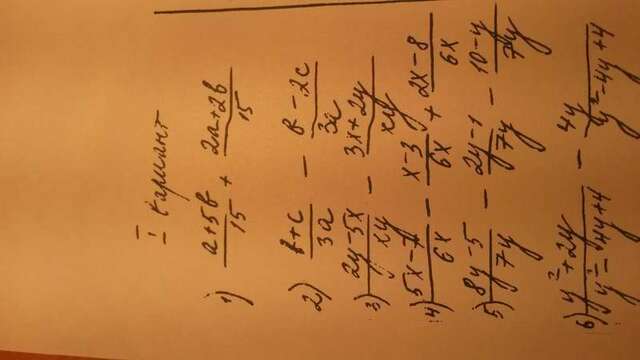 I вариант
1) (a+5b)/15 + (2a+2b)/15
2) (b+c)/3a - (b-2c)/3a
3) (2y-5x)/xy - (3x+2y)/xy
4) (5x-7)/6x - (x-3)/6x + (2x-8)/6x
5) (8y-5)/7y - (2y-1)/7y - (10-y)/7y
6) (y²+2y)/(y²-4y+4) - 4y/(y²-4y+4)